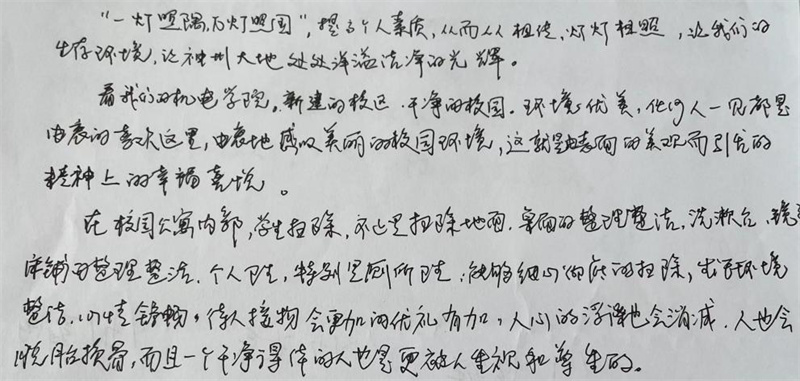 “一灯照隅,万灯照国”,提高个人素质,从而从相传,灯灯相照,让我们的
生存环境,让神州大地处处洋溢洁净的光辉。
看我们的机电学院。新建的校区,干净的校园。环境优美,任何人一见都是
由衷的喜欢这里,由衷地感叹美丽的校园环境,这就是由表面的美观而引发的
精神上的幸福喜悦。
在校园公寓内部,学生扫除,不止是扫除地面,桌面的整理整洁,洗漱台、镜
床铺的整理整洁,个人卫生,特别是厕所卫生,能够细心彻底的扫除,生存环境
整洁,心情舒畅,待人接物会更加的优礼有加,人心的浮躁也会消减,人也会
脱胎换骨,而且一个干净得体的人也是更被人重视和尊重的。